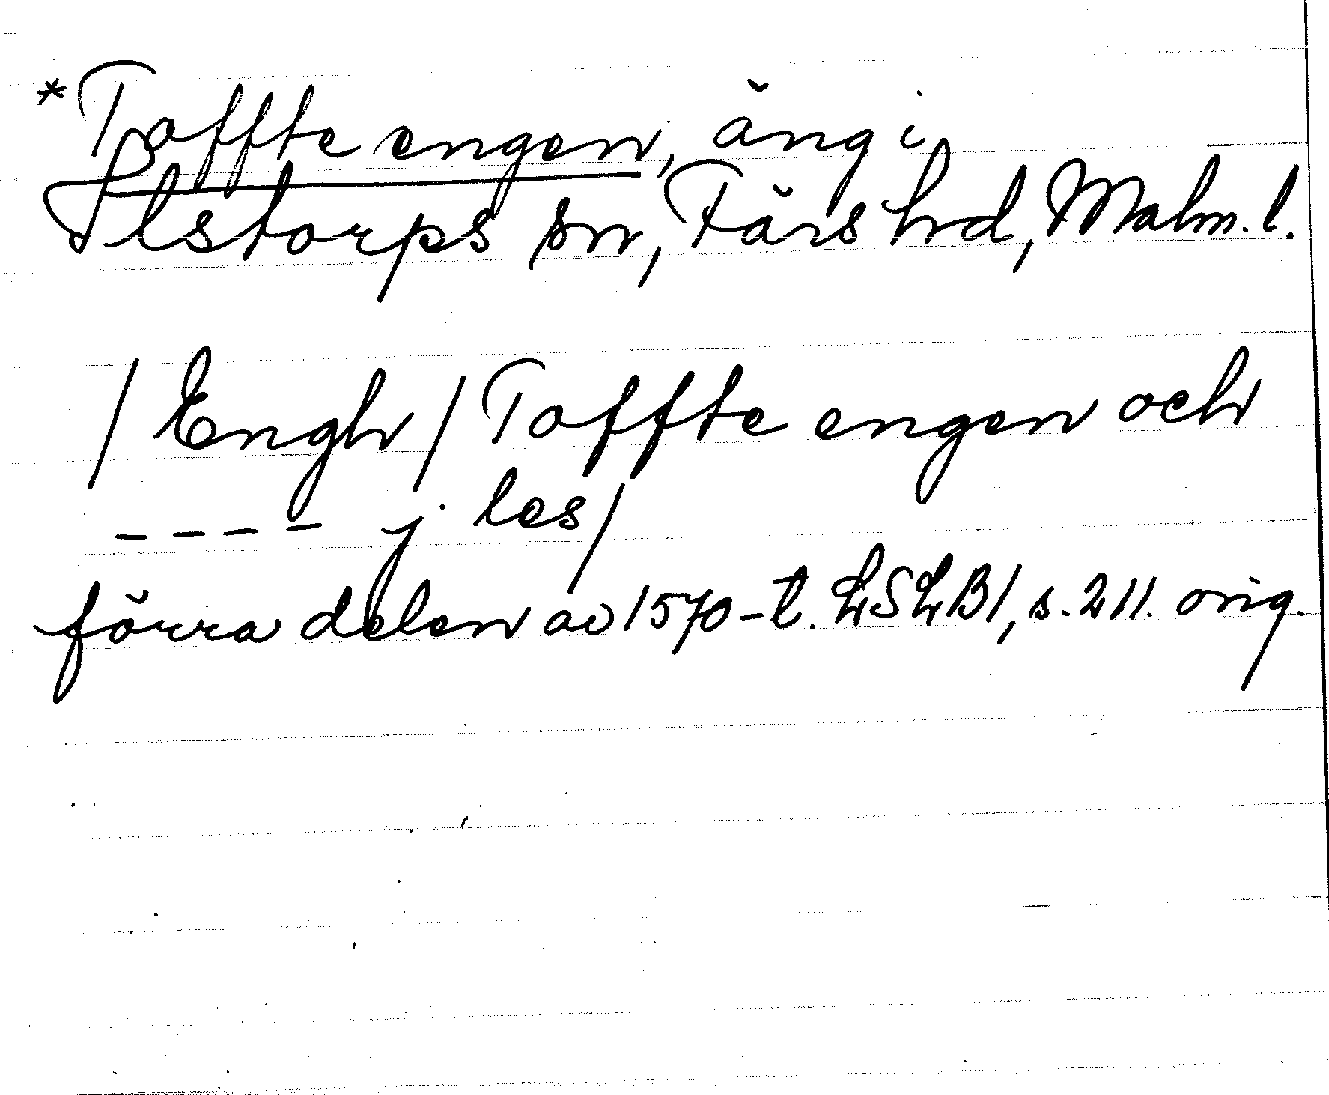 *Toffte engen, äng i
Ilstorps sn, Färs hd, Malm. l.
/Engh/ Toffte engen och
---- j les/
förra delen av 1570-t. LSLB1, s. 211. orig.